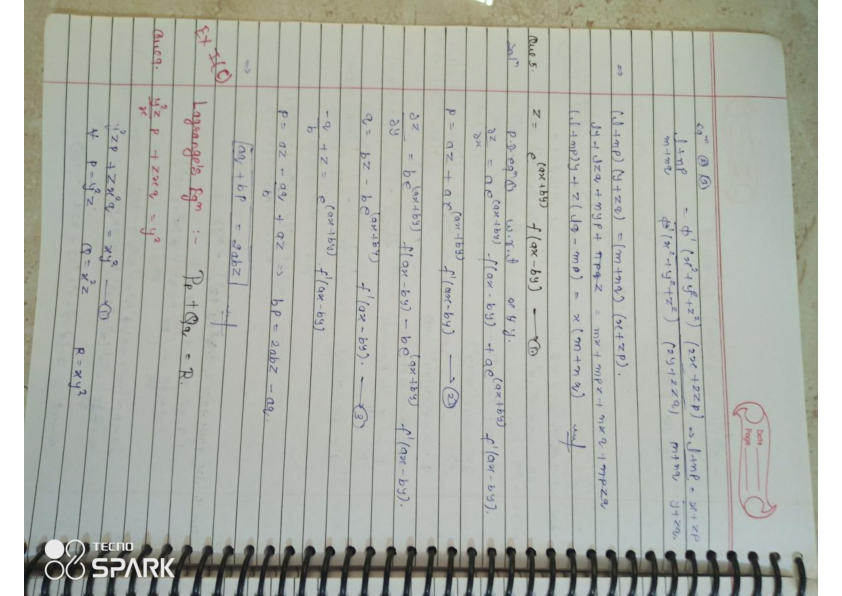 Date
Page
eqn ② ③
l+np / m+nq = ϕ'(x²+y²+z²) (2x+2zp) / ϕ'(x²+y²+z²) (2y+2zq) ⇒ l+np / m+nq = x+zp / y+zq
⇒ (l+np) (y+zq) = (m+nq) (x+zp).
ly + lzq + nyp + npqz = mx + mpz + nxq + npzq
(l+np)y + z(lq - mp) = x(m+nq)
Que 5. z = e^(ax+by) f(ax-by) — ①
Sol^n P.D. eq^n ① w.r.t. x or y.
∂z/∂x = ae^(ax+by) f(ax-by) + ae^(ax+by) f'(ax-by).
p = az + ae^(ax+by) f'(ax-by) — ②
∂z/∂y = be^(ax+by) f(ax-by) - be^(ax+by) f'(ax-by).
q = bz - be^(ax+by) f'(ax-by). — ③
-q/b + z = e^(ax+by) f'(ax-by)
p = az - aq/b + az ⇒ bp = 2abz - aq.
⇒ aq + bp = 2abz
Lagrange's Eq^n :- Pp + Qq = R.
Que 1. y²z/x p + zxq = y²
y²zp + zx²q = xy² — ①
P = y²z Q = x²z R = xy²
TECNO
SPARK